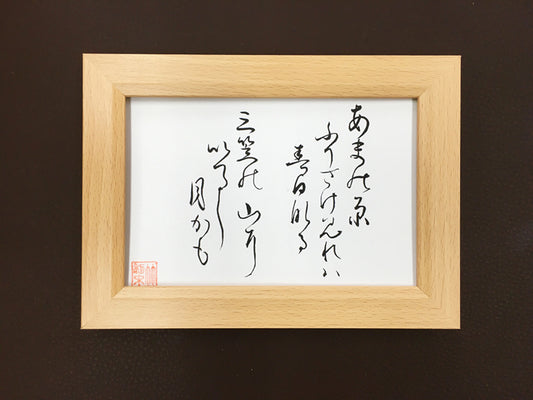 あまの原
ふりさけ見れば
春日なる
三笠の山に
いでし
月かも